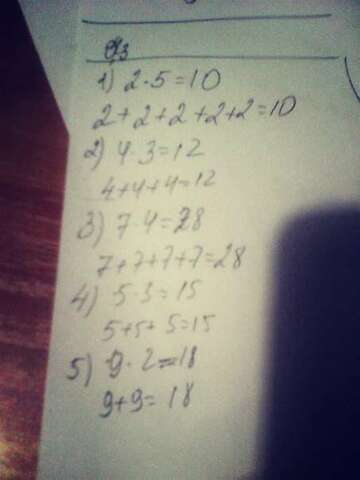 1) 2·5=10
2+2+2+2+2=10
2) 4·3=12
4+4+4=12
3) 7·4=28
7+7+7+7=28
4) 5·3=15
5+5+5=15
5) 9·2=18
9+9=18